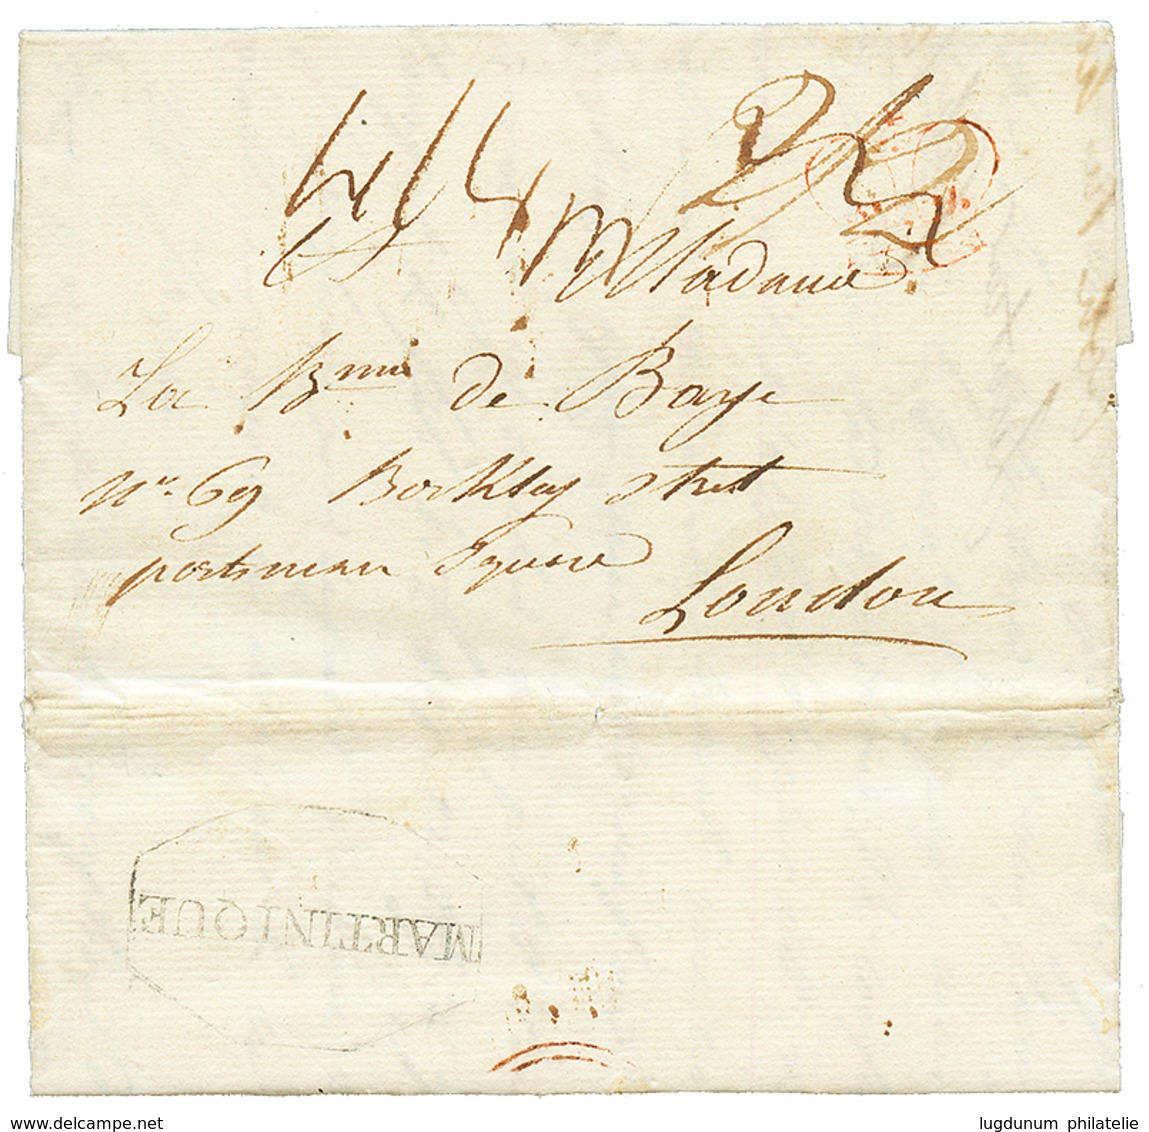 Madame
La B.nne de Baye
N.o 69 Berkley Street
portman Square
London
MARTINIQUE
www.delcampe.net
lugdunum philatelie